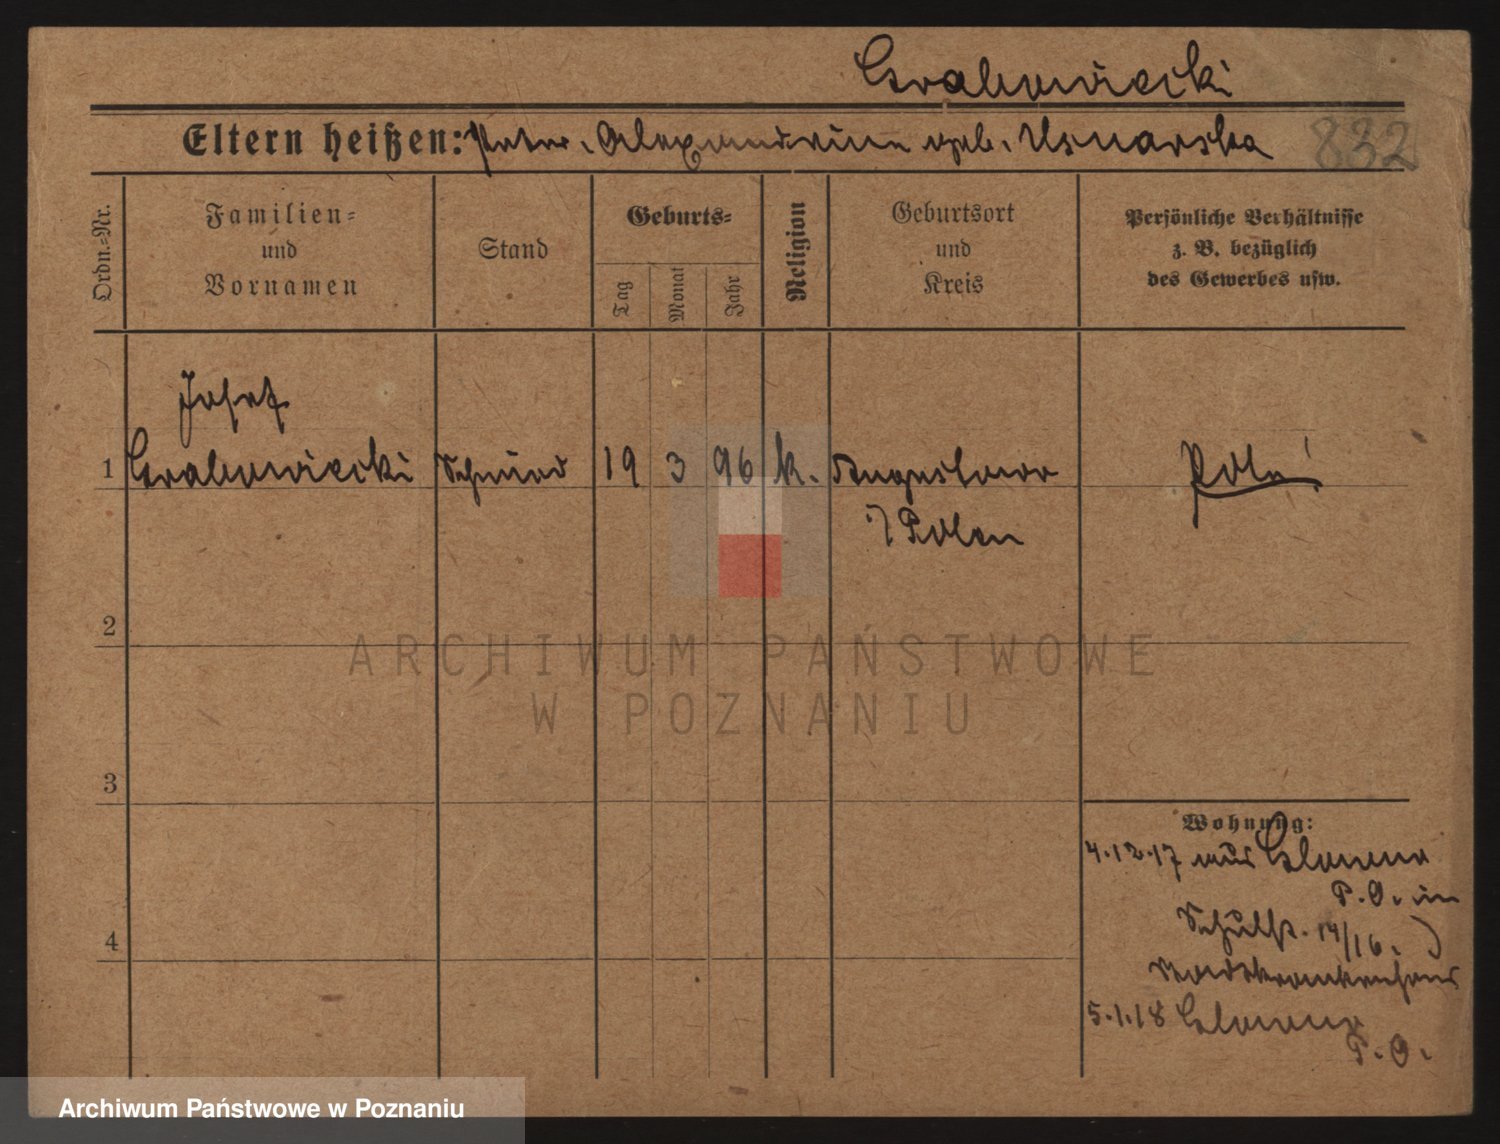 Grabowiecki
Eltern heißen: Peter, Alexandrine geb. Usnarska 832
Ordn.-Nr.
Familien-
und
Vornamen
Stand
Geburts-
Tag
Monat
Jahr
Religion
Geburtsort
und
Kreis
Persönliche Verhältnisse
z. B. bezüglich
des Gewerbes usw.
Josef
1 Grabowiecki Schmied 19 3 96 k. Augustowo Pole!
i/ Polen
2
3
4
Wohnung:
4.12.17 aus Glowno
P. O. in
Schulstr. 14/16.
Stadtkrankenhaus
5.1.18 Glowno
P. O.
ARCHIWUM PAŃSTWOWE
W POZNANIU
Archiwum Państwowe w Poznaniu